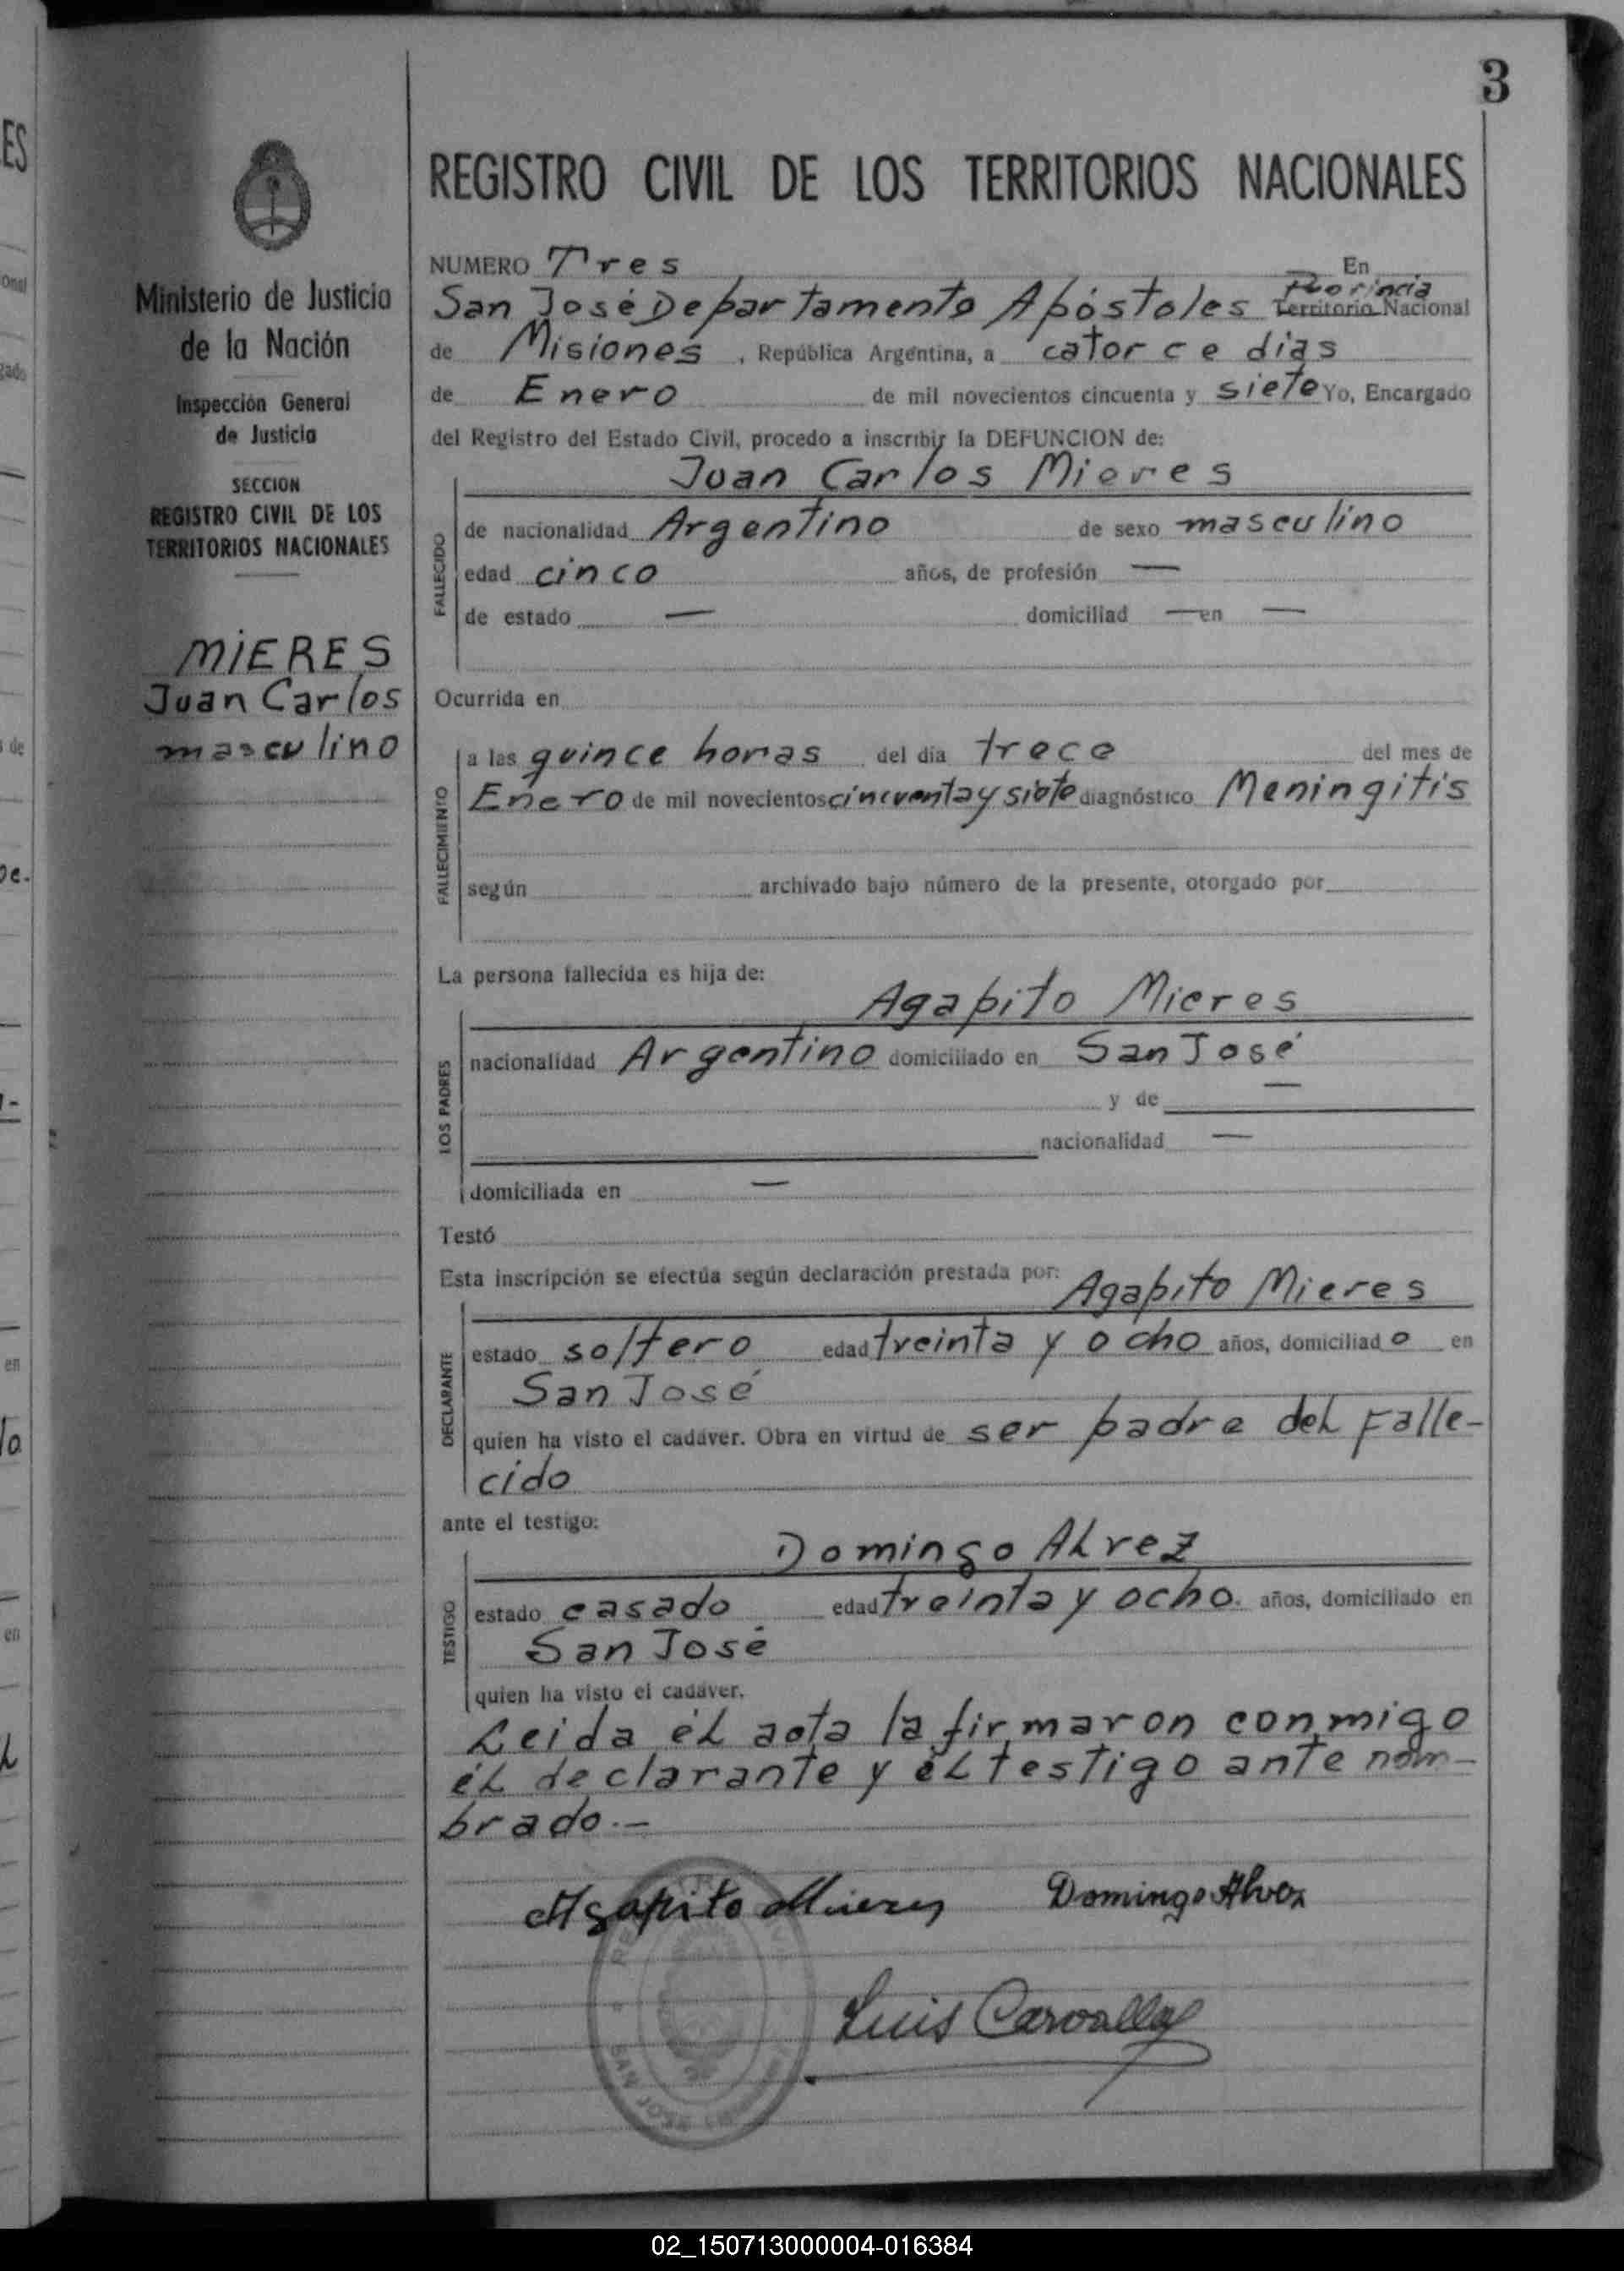 3
REGISTRO CIVIL DE LOS TERRITORIOS NACIONALES
Ministerio de Justicia
de la Nación
Inspección General
de Justicia
SECCION
REGISTRO CIVIL DE LOS
TERRITORIOS NACIONALES
MIERES
Juan Carlos
masculino
NUMERO Tres En
San José Departamento Apóstoles Provincia Territorio Nacional
de Misiones, República Argentina, a catorce dias
de Enero de mil novecientos cincuenta y siete Yo, Encargado
del Registro del Estado Civil, procedo a inscribir la DEFUNCION de:
Juan Carlos Mieres
FALLECIDO
de nacionalidad Argentino de sexo masculino
edad cinco años, de profesión —
de estado — domiciliad — en —
Ocurrida en
FALLECIMIENTO
a las quince horas del día trece del mes de
Enero de mil novecientos cincuenta y siete diagnóstico Meningitis
según archivado bajo número de la presente, otorgado por
La persona fallecida es hija de:
Agapito Mieres
LOS PADRES
nacionalidad Argentino domiciliado en San José
y de —
nacionalidad —
domiciliada en —
Testó
Esta inscripción se efectúa según declaración prestada por:
Agapito Mieres
DECLARANTE
estado soltero edad treinta y ocho años, domiciliado en
San José
quien ha visto el cadáver. Obra en virtud de ser padre del Falle-
cido
ante el testigo:
Domingo Alvez
TESTIGO
estado casado edad treinta y ocho. años, domiciliado en
San José
quien ha visto el cadáver.
Leida él acta la firmaron conmigo
él declarante y él testigo ante nom-
brado.-
Agapito Mieres Domingo Alvez
Luis Carvallo
SAN JOSE
02_150713000004-016384